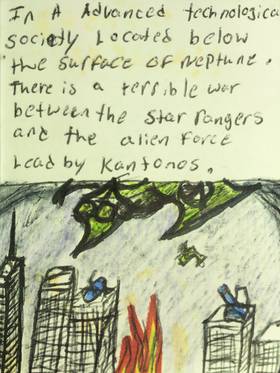 In A Advanced technological
society Located below
the surface of neptune.
There is a terrible war
between the Star rangers
and the alien Force
Lead by Kantonos.